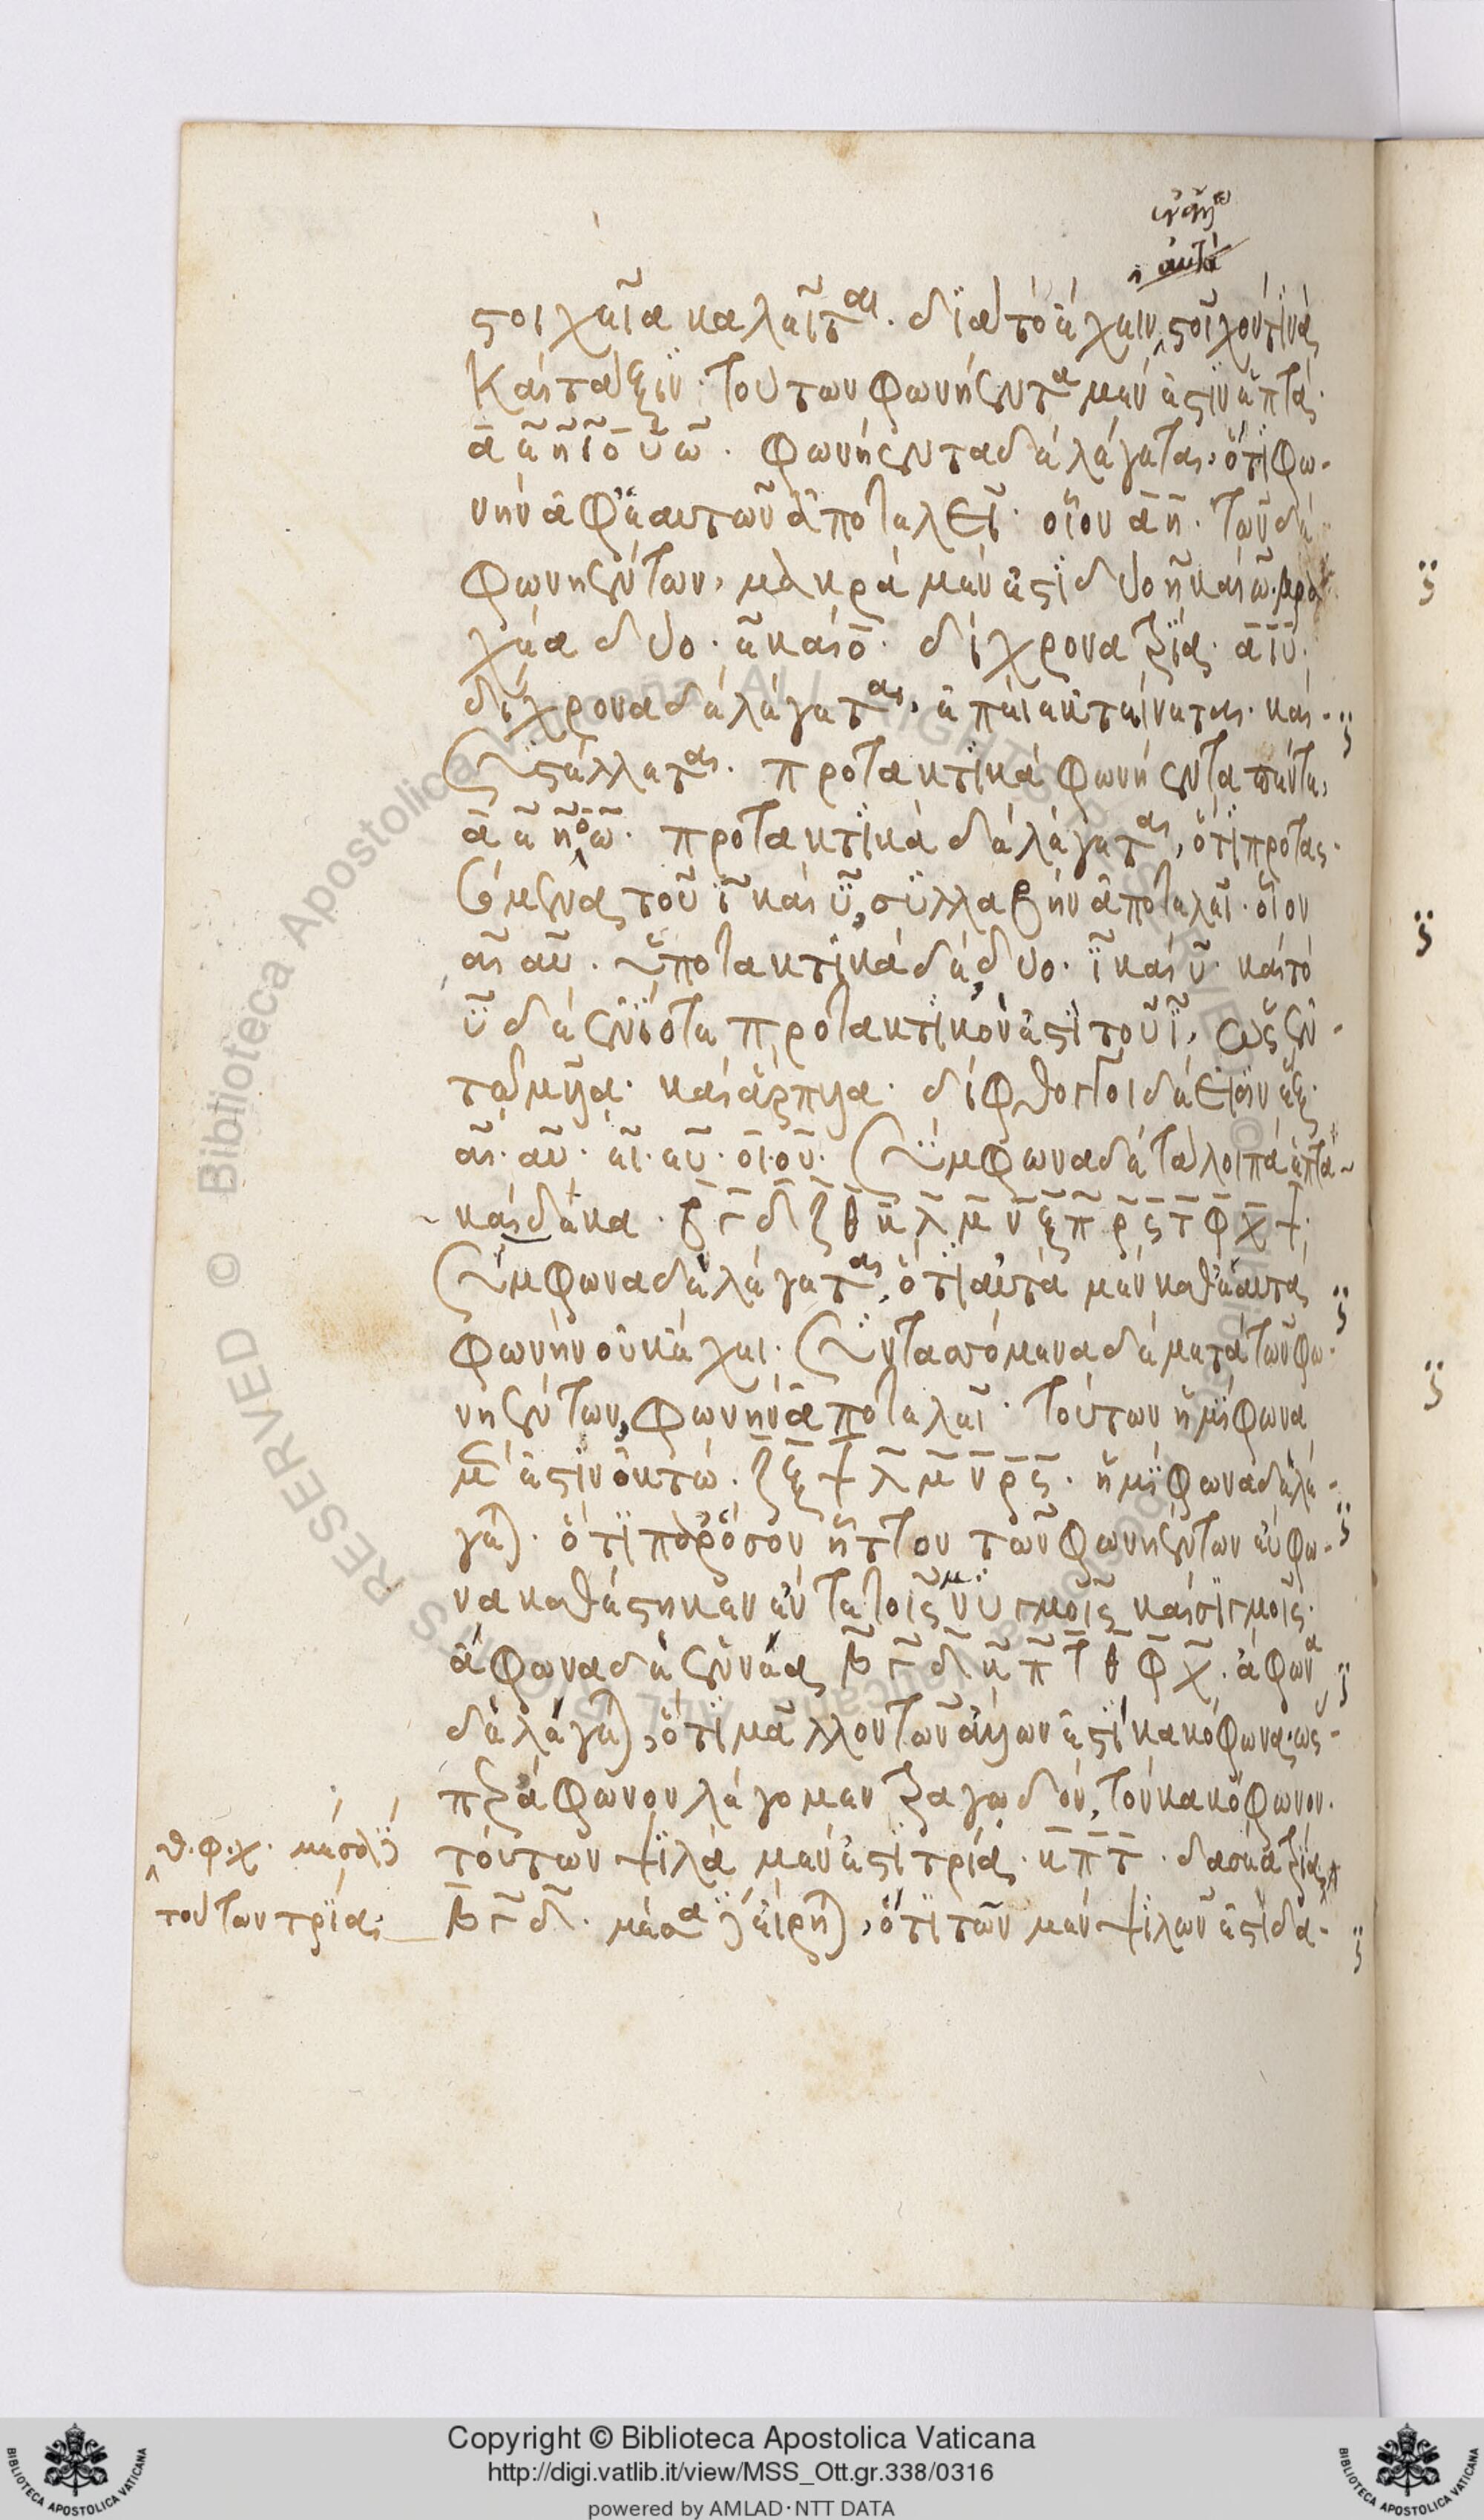 ἢ αὐτὰ
στοιχεῖα καλεῖται. διὰ τὸ ἔχειν στοῖχόν τινα
καὶ τάξιν. τούτων φωνήεντα μέν ἐστιν ἑπτά.
α ε η ι ο υ ω. φωνήεντα δὲ λέγεται, ὅτι φω-
νὴν ἀφ' ἑαυτῶν ἀποτελεῖ. οἷον α η. τῶν δὲ
φωνηέντων, μακρὰ μέν ἐστι δύο η καὶ ω. βρα-
χέα δύο. ε καὶ ο. δίχρονα τρία. α ι υ.
δίχρονα δὲ λέγεται, ἐπεὶ ἐκτείνεται καὶ
συστέλλεται. προτακτικὰ φωνήεντα πέντε,
α ε η ο ω. προτακτικὰ δὲ λέγεται, ὅτι προτασ-
σόμενα τοῦ ι καὶ υ, συλλαβὴν ἀποτελεῖ. οἷον
αι αυ. ὑποτακτικὰ δὲ δύο. ι καὶ υ. καὶ τὸ
υ δὲ ἐνίοτε προτακτικόν ἐστι τοῦ ι, ὡς ἐν
τῷ μυῖα. καὶ ἅρπυια. δίφθογγοι δέ εἰσιν ἕξ.
αι. αυ. ει. ευ. οι. ου. σύμφωνα δὲ τὰ λοιπὰ ἑπτα-
καίδεκα. β γ δ ζ θ κ λ μ ν ξ π ρ ς τ φ χ ψ.
σύμφωνα δὲ λέγεται, ὅτι αὐτὰ μὲν καθ' ἑαυτὰ
φωνὴν οὐκ ἔχει. συντασσόμενα δὲ μετὰ τῶν φω-
νηέντων, φωνὴν ἀποτελεῖ. τούτων ἡμίφωνα
μέν ἐστιν ὀκτώ. ζ ξ ψ λ μ ν ρ ς. ἡμίφωνα δὲ λέ-
γεται. ὅτι παρόσον ἧττον τῶν φωνηέντων εὔφω-
να καθέστηκεν ἔν τε τοῖς μυγμοῖς καὶ σιγμοῖς.
ἄφωνα δὲ ἐννέα β γ δ κ π τ θ φ χ. ἄφωνα
δὲ λέγεται, ὅτι μᾶλλον τῶν ἄλλων ἐστὶ κακόφωνα. ὥσ-
περ ἄφωνον λέγομεν τραγῳδόν, τὸν κακόφωνον.
τούτων ψιλὰ μέν ἐστι τρία. κ π τ. δασέα τρία
θ. φ. χ. μέσα δὲ
τούτων τρία.
β γ δ. μέσα δὲ εἴρηται, ὅτι τῶν μὲν ψιλῶν ἐστὶ δα-
Copyright © Biblioteca Apostolica Vaticana
http://digi.vatlib.it/view/MSS_Ott.gr.338/0316
powered by AMLAD·NTT DATA